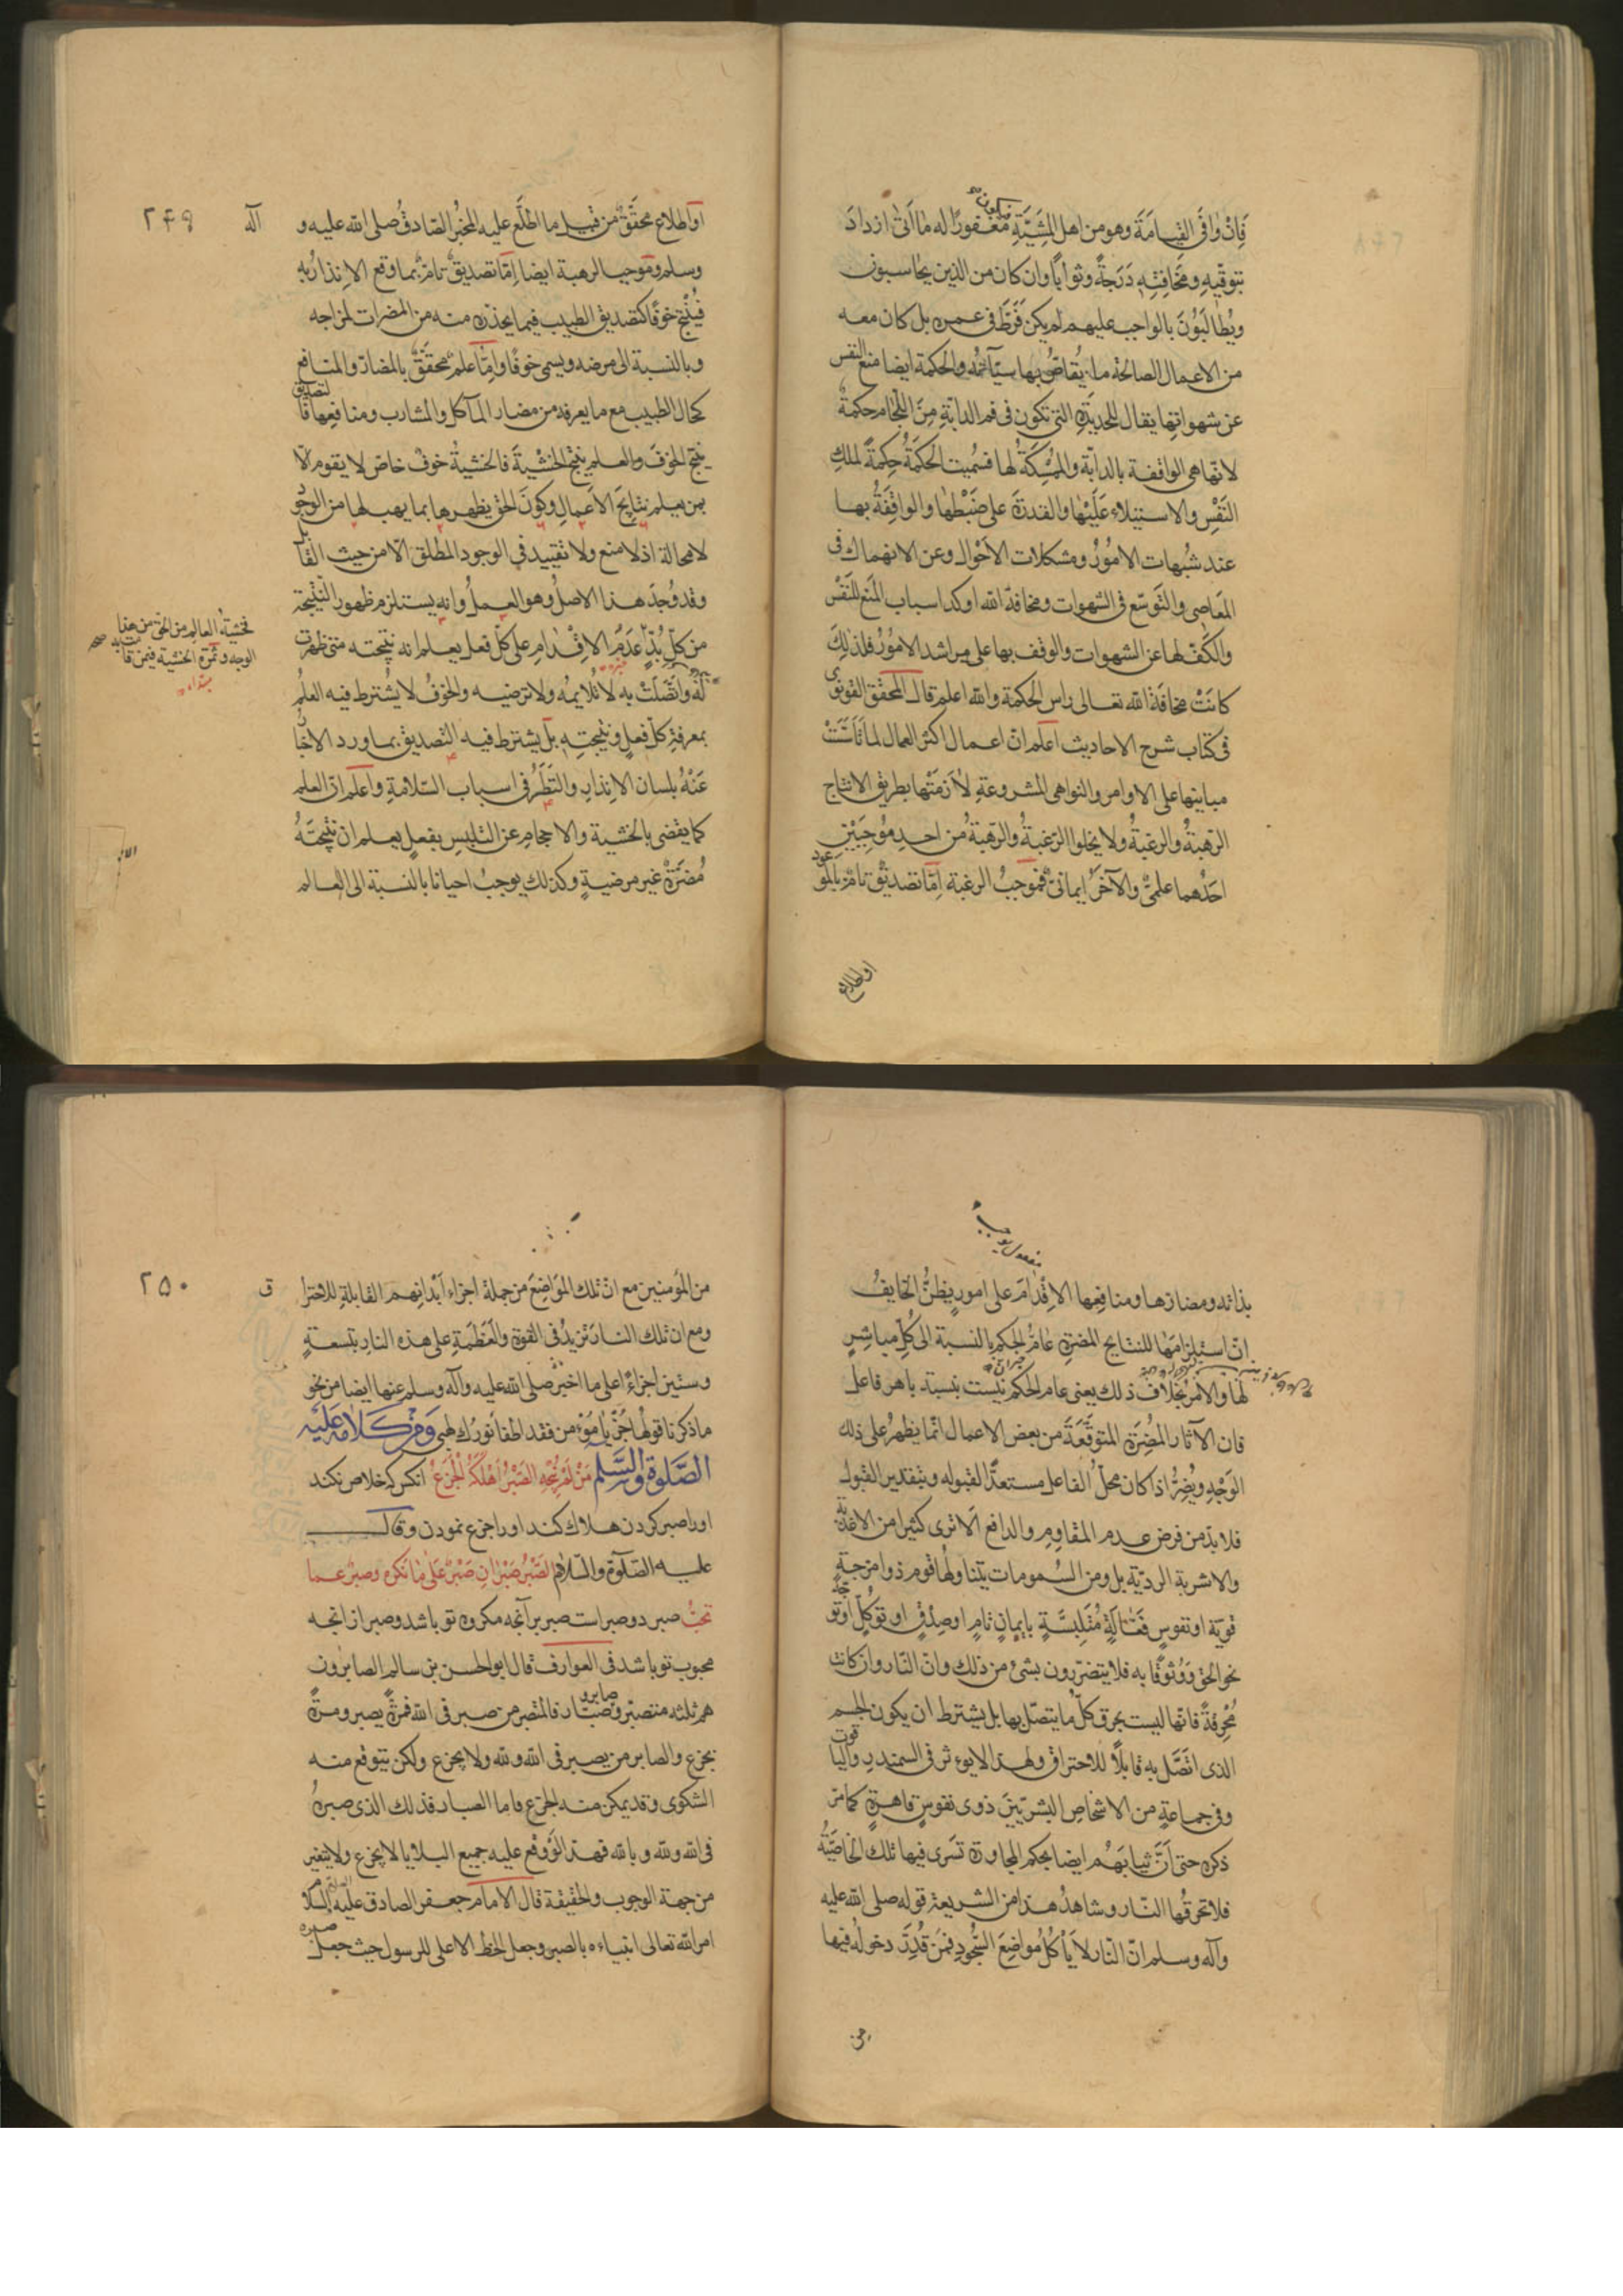 فَاِنْ وافَى القيامَةَ وهو من اهل المَشِيَّةِ مغفورًا له ما اَتىٰ ازدادَ
بتوقيهِ ومخافتِهِ دَرَجةً وثوابًا وان كان من الذين يحاسبون
ويُطالَبُونَ بالواجب عليهم لم يكن فَرَّطَ فى عمره بل كان معه
من الاعمال الصالحة ما يُقاصُّ بها سيّآته والحكمة ايضا منع النفس
عن شهواتها يقال للحديدة التى تكون فى فم الدابّةِ مِنَ اللِّجامِ حكمةٌ
لانّها هى الواقفة بالدابّة والمُمسِكَةُ لها فسُميت الحكمَةُ حِكمةً لملكِ
النَّفْسِ والاستيلاءِ عَلَيْها والقدرةِ على ضَبْطها والواقِفَةُ بها
عند شُبهات الاُمُوُر ومشكلات الاَحْوال وعن الانهماك فى
المَعَاصى والتَوسّع فى الشهوات ومخافة الله اوكد اسباب المَنع للنَفْس
والكَفّ لها عن الشهوات والوقف بها على مراشد الامُوُر فلذلِكَ
كانَتْ مخافَةُ الله تعالى راس الحكمة والله اعلم قال المحقق القونوى
فى كتاب شرح الاحاديث اعلم انّ اعمال اكثر العمال لما تَاَسَّسَتْ
مبانيها على الاوامر والنواهى المشروعةِ لاَزمَتْها بطريق الانتاج
الرهبةُ والرغبةُ ولا يخلوا الرَغبةُ والرهبةُ من احدِ مُوجِبَيْنِ
احَدُهما علمىٌّ والآخرُ ايمانىٌّ فموجبُ الرغبة اِمّا تصديقٌ تامٌّ بالموعود
اوطلاع
اواطلاع محقَّقٌ من قبيل ما اطلَّع عليه المخبُر الصّادقُ صلى الله عليه و آله ٢٤٩
وسلم وموجب الرهبة ايضا اِمّا تصديقٌ تامٌّ بما وقع الاِنذارُ بهِ
فيُنتج خوفًا كتصديق الطبيب فيما يحذّره منه من المضرات لمزاجه
وبالنسبة الى مرضه ويسمى خوفًا وامّا علمٌ محقَّقٌ بالمضارّ والمنافع
كحال الطبيب مع ما يعرفه من مضار المآكل والمشارب ومنافِعِها فالتصديق
ينتج الخوفَ والعلم ينتج الخشْيةَ فالخشيةُ خوفٌ خاصّ لا يقوم الّا
بمن يعلم نتايجَ الاَعمالِ وكونَ الحق يظهرها بما يهب لها من الوجود
لا محالة اذ لا منع ولا تقييد فى الوجود المطلق الّا من حيث القابل
وقد وُجدَ هذا الاصلُ وهو العملُ وانه يستلزم ظهور النّتيجة
فخشية العالم من الحق من هذا
الوجه وثمرة الخشية فيمن قامت به صح
مبتداء
من كلّ بُدٍّ عَدَمُ الاِقْدامِ على كلّ فعل يعلم انه نتيجته متى ظهرت
لَهُ واتَّصَلَتْ به لا تُلايمهُ ولا ترضيه والخوفُ لا يُشترط فيه العلمُ
بمعرفةِ كلّ فعلٍ ونتيجتِهِ بل يشترط فيه التصديق بما ورد الاخبار
عَنْهُ بلسان الانذار والنَظَرُ فى اسباب السّلامةِ واعلم انّ العلم
كما يقضى بالخشية والاحجامِ عن التلبسِ بفعلٍ يعلم ان نتيجتَهُ
مُضرَّةٌ غير مرضيةٍ وكذلك يوجبُ احيانا بالنسبة الى العالم
مفعول يوجب
بذاته ومضارها ومنافِعِها الاقْدامَ على امورٍ يظنُّ الخايفُ
انّ استلزامَهٰا للنتايج المضرةِ عامُّ الحكمِ بالنسبة الى كُلِّ مباشرٍ
لها والامرُ بخلاف ذلك يعنى عام الحكم نيست بنسبت با هر فاعل
فان الآثار المُضِرّة المتوقَّعَةَ من بعض الاعمال انّما يظهرُ على ذلك
الوَجْهِ ويُضِرُّ اذا كان محلّ الفاعل مستعدًّا لقبوله وبتقدير القبول
فلا بدّ من فرض عدم المقاوم والدافع الا ترى كثيرا من الاغذية
والاشربة الرديّة بل ومن السُموماتِ يتناولُها قوم ذوا امزجةٍ
قويّة او نفوسٍ فَعّالَةٍ مُتَلبِّسَةٍ بايمانٍ تامٍ او صِدْقٍ او توكلٍ او توجّه
نحو الحق وَوُثوقًا به فلا يتضرّرون بشئ من ذلك وانّ النّار وان كانت
مُحْرِقَةً فانّها ليست بحرق كلّ ما يتصّل بها بل يشترط ان يكون الجسم
الذى اتّصَّل به قابلًا للاحتراق ولهذا لا يوءثر فى السمندر والياقوت
وفى جماعةٍ من الاشخاصِ البشريّينَ ذوى نفوسٍ قاهرةٍ كما مرّ
ذكره حتى اَنَّ ثيابَهُم ايضا بحكم المجاورة تَسَرى فيها تلك الخاصّيّةُ
فلا تحرقُها النّار وشاهدُ هذا من الشريعة قوله صلى الله عليه
وآله وسلم انّ النّار لا يَاْكُلُ مواضِعَ السُّجُودِ فمَن قُدِّرَ دخولُهُ فيها
من
من المُؤمنين مع انّ تلك المَوَاضِعَ من جملة اجزاء اَبْدانِهم القابلةِ للاحترا ق ٢٥٠
ومع ان تلك النارَ تزيدُ فى القوة والعَظَمَةِ على هذه النارِ بتسعةٍ
وستين اجزاءٍ على ما اخبر صلى الله عليه وآله وسلم عنها ايضا من نحو
ما ذكرنا قولُها جُزْ يا مُؤمن فقد اطفا نورُك لهبى ومن كلامه عليه
الصّلوة والسّلم مَنْ لَمْ يُنْجِهِ الصَّبْرُ اَهْلَكَهُ الْجَزَعُ انكس كه خلاص نكند
او را صبر كردن هلاك كند او را جزع نمودن وقال
عليه الصّلوة والسّلام الصَّبْرُ صَبْرانِ صَبْرٌ عَلىٰ ما تَكره وصبرٌ عما
تحبُّ صبر دو صبر است صبر بر آنچه مكروه تو باشد وصبر از انچه
محبوب تو باشد فى العوارف قال ابو الحسن بن سالم الصابرون
هم ثلثه متصبّر وصابر وصبّار فالمتصبر من صبر فى الله فمرّةً يصبر ومرةً
يجزع والصابر من يصبر فى الله ولله ولا يجزع ولكن يتوقع منه
الشكوى وقد يمكن منه الجزع فاما الصبار فذلك الذى صبرهُ
فى الله ولله وبالله فهذا لو وقع عليه جميع البلايا لا يجزع ولا يتغير
من جهة الوجوب والحقيقة قال الامام جعفر الصادق عليه السلام
امر الله تعالى انبياءه بالصبر وجعل الحظ الاعلى للرسول حيث جعل صبره